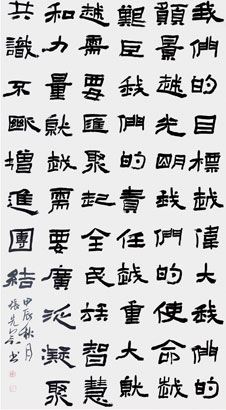 我們的目標越偉大我們的
願景越光明我們的使命越
艱巨我們的責任越重大就
越需要匯聚起全民族智慧
和力量就越需要廣泛凝聚
共識不斷增進團結
甲辰秋月
張先書